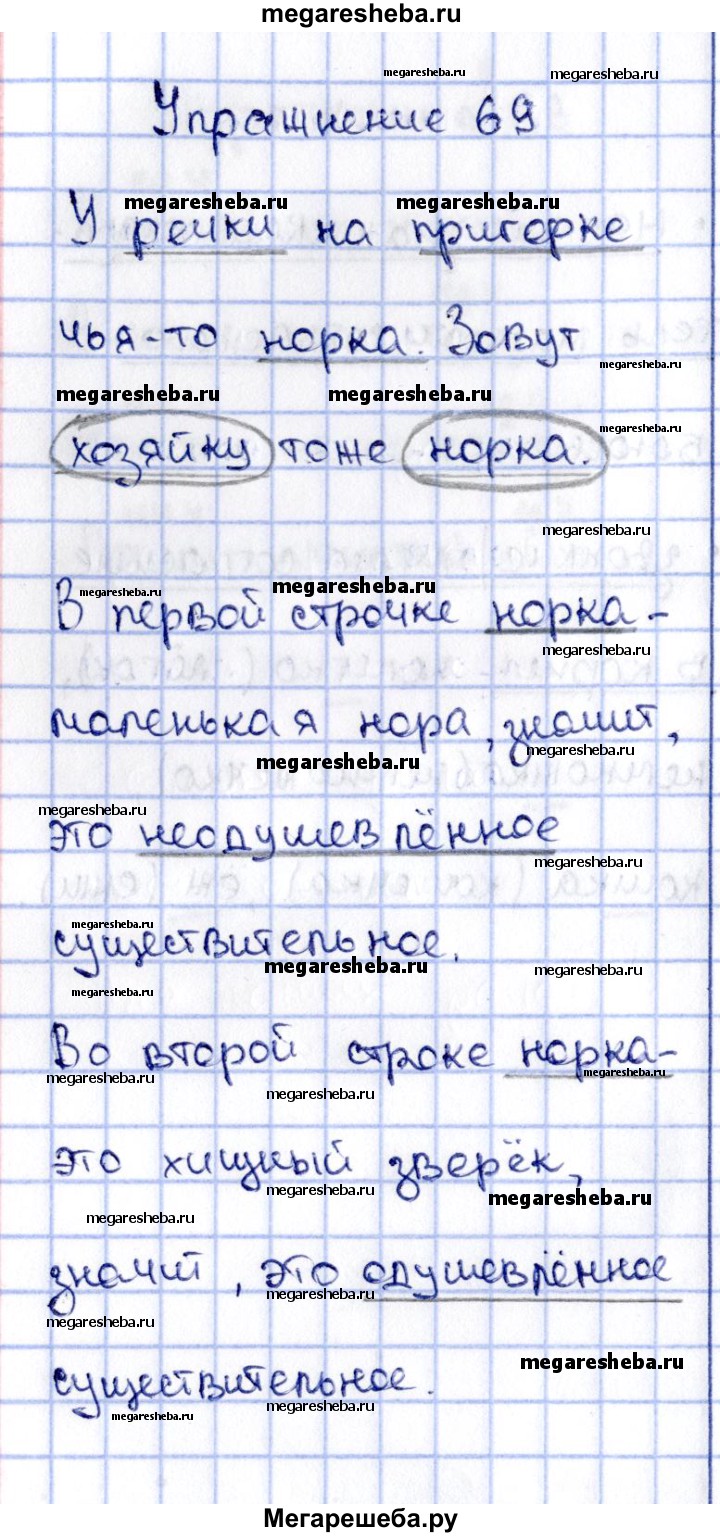 megaresheba.ru
megaresheba.ru megaresheba.ru
Упражнение 69
megaresheba.ru megaresheba.ru
У речки на пригорке
чья-то норка. Зовут
megaresheba.ru
megaresheba.ru megaresheba.ru
megaresheba.ru
хозяйку тоже норка.
megaresheba.ru
megaresheba.ru megaresheba.ru
В первой строчке норка-
megaresheba.ru
маленькая нора, значит,
megaresheba.ru
megaresheba.ru
megaresheba.ru
это неодушевлённое
megaresheba.ru
megaresheba.ru
существительное.
megaresheba.ru megaresheba.ru
megaresheba.ru
Во второй строке норка-
megaresheba.ru megaresheba.ru
megaresheba.ru
это хищный зверёк,
megaresheba.ru megaresheba.ru
megaresheba.ru
значит, это одушевлённое
megaresheba.ru
megaresheba.ru
megaresheba.ru
существительное.
megaresheba.ru megaresheba.ru
Мегарешеба.ру